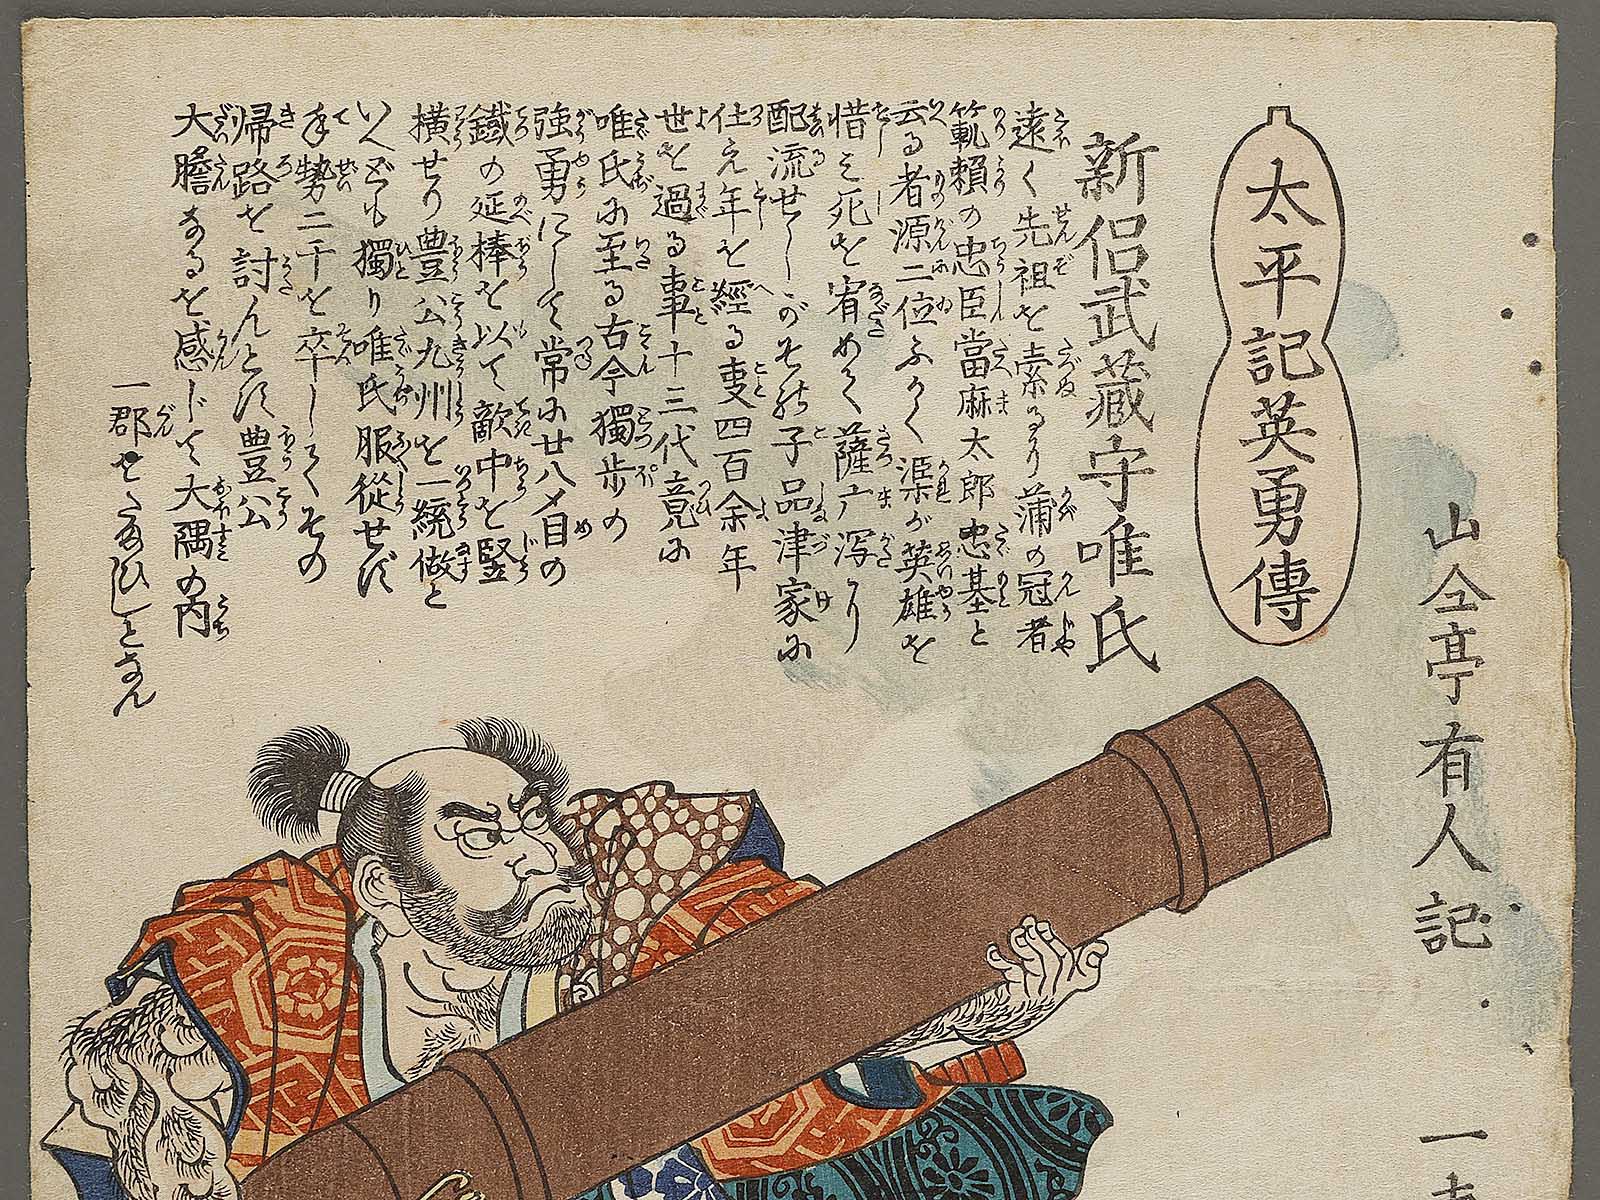 太平記英勇傳
山々亭有人記
一
新侶武蔵守唯氏
遠く先祖を索るに蒲の冠者
範頼の忠臣當麻太郎忠基と
云る者源二位ふかく渠が英雄を
惜み死を宥めて薩广潟に
配流せしがその子品津家に
仕え年を經る事四百余年
世を過る事十三代竟に
唯氏に至る古今獨歩の
強勇にして常に廿八〆目の
鐵の延棒を以て敵中を竪
横せり豊公九州を一統做と
いへども獨り唯氏服從せず
手勢二千を卒してその
帰路を討んとす豊公
大膽なるを感じて大隅の内
一郡を